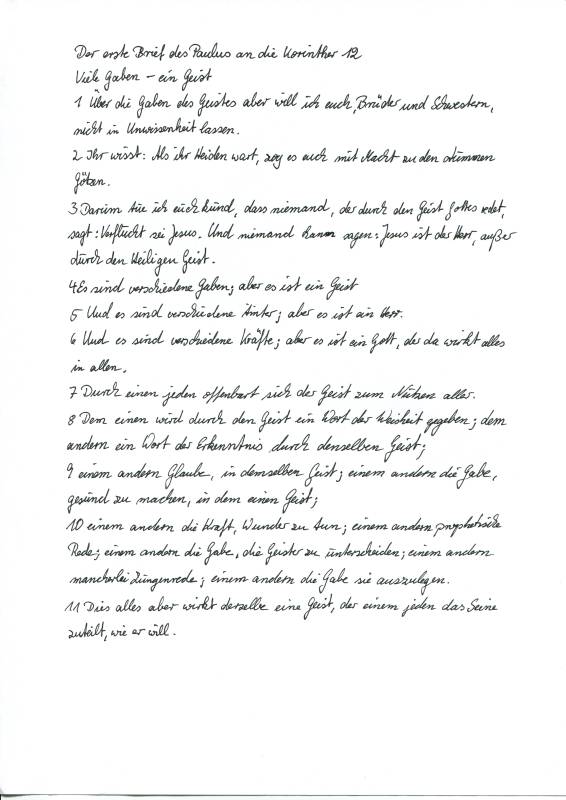 Der erste Brief des Paulus an die Korinther 12
Viele Gaben – ein Geist
1 Über die Gaben des Geistes aber will ich euch, Brüder und Schwestern,
nicht in Unwissenheit lassen.
2 Ihr wisst: Als ihr Heiden wart, zog es euch mit Macht zu den stummen
Götzen.
3 Darum tue ich euch kund, dass niemand, der durch den Geist Gottes redet,
sagt: Verflucht sei Jesus. Und niemand kann sagen: Jesus ist der Herr, außer
durch den Heiligen Geist.
4 Es sind verschiedene Gaben; aber es ist ein Geist
5 Und es sind verschiedene Ämter; aber es ist ein Herr.
6 Und es sind verschiedene Kräfte; aber es ist ein Gott, der da wirkt alles
in allen.
7 Durch einen jeden offenbart sich der Geist zum Nutzen aller.
8 Dem einen wird durch den Geist ein Wort der Weisheit gegeben; dem
andern ein Wort der Erkenntnis durch denselben Geist;
9 einem andern Glaube, in demselben Geist; einem andern die Gabe,
gesund zu machen, in dem einen Geist;
10 einem andern die Kraft, Wunder zu tun; einem andern prophetische
Rede; einem andern die Gabe, die Geister zu unterscheiden; einem andern
mancherlei Zungenrede; einem andern die Gabe sie auszulegen.
11 Dies alles aber wirkt derselbe eine Geist, der einem jeden das Seine
zuteilt, wie er will.